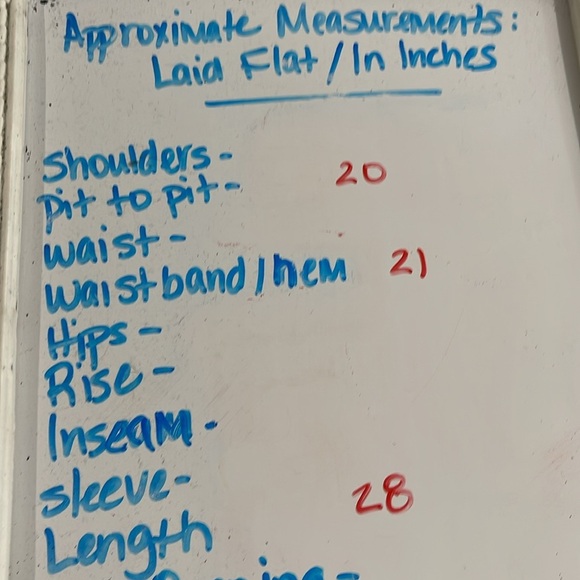 Approximate Measurements:
Laid Flat / In Inches
Shoulders-
Pit to pit- 20
Waist-
Waistband/hem 21
Hips-
Rise-
Inseam-
Sleeve- 28
Length